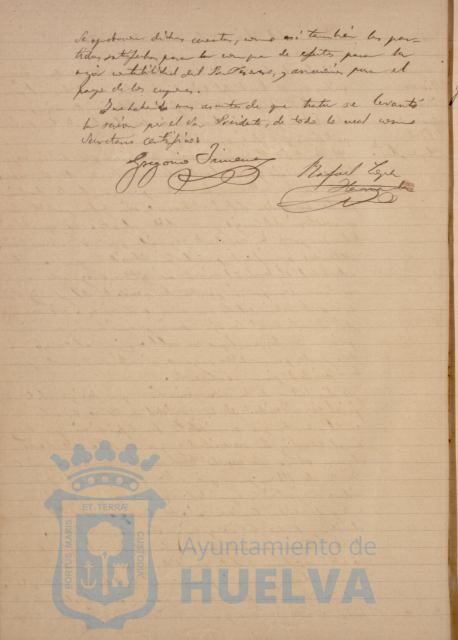 Se aprobaron dichas cuentas, como así también las par-
tidas satisfechas para la compra de efectos para la
contabilidad del y anuncios para el
pago de los cupones.
No habiendo mas asuntos de que tratar se levantó
la sesión por el Sr. Presidente, de todo lo cual como
Secretario certifico=
Gregorio Jimenez
Rafael Lopez
Hernandez
ET TERRÆ
PORTUS MARIS
CUSTODIA
Ayuntamiento de
HUELVA